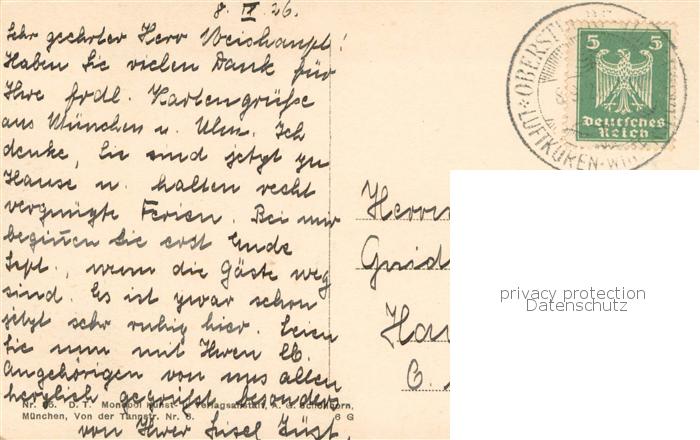 8. IX. 26.
Sehr geehrter Herr Weishaupt!
Haben Sie vielen Dank für
Ihre frdl. Kartengrüße
aus München u. Ulm. Ich
denke, Sie sind jetzt zu
Hause u. halten recht
vergnügte Ferien. Bei mir
beginnen sie erst Ende
Sept., wenn die Gäste weg
sind. Es ist zwar schon
jetzt sehr ruhig hier. Seien
Sie nun mit Ihren lb.
Angehörigen von uns allen
herzlich gegrüßt besonders
von Ihrer Liesel
Nr. D. T. Monopol Kunst- u. Verlagsanstalt, A. G. Schönhorn,
München, Von der Tannstr. Nr. 6. 6 G
5 5
Deutsches
Reich
OBERST
LUFTKUREN-WIN
Herrn
Guid
Han
privacy protection
Datenschutz